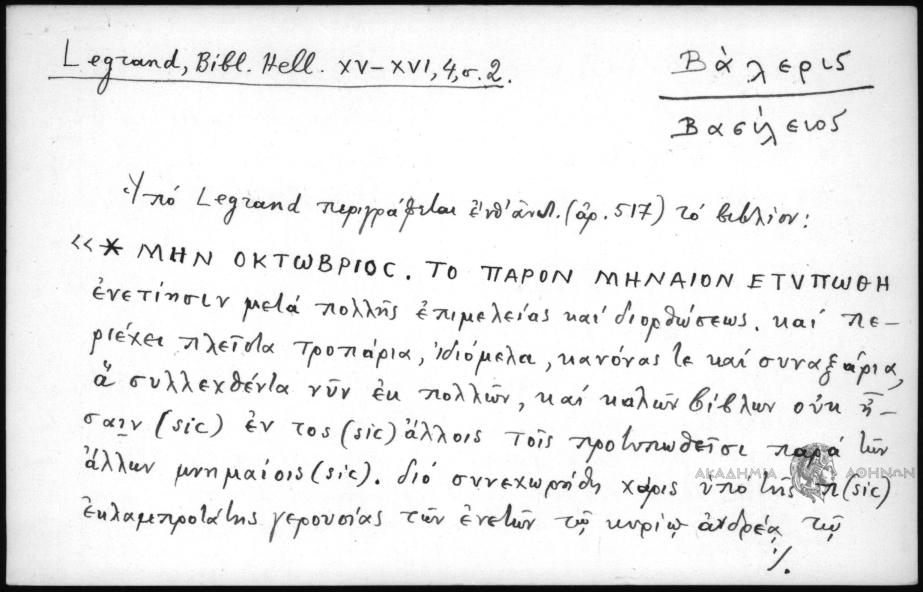 Legrand, Bibl. Hell. XV–XVI, 4, σ. 2.
Βάλερις
Βασίλειος
Ὑπό Legrand περιγράφεται ἐνθ' ἀνωτ. (ἀρ. 517) τό βιβλίον:
«* ΜΗΝ ΟΚΤΩΒΡΙΟC. ΤΟ ΠΑΡΟΝ ΜΗΝΑΙΟΝ ΕΤΥΠΩΘΗ
ἐνετίησιν μετά πολλῆς ἐπιμελείας καί διορθώσεως. καί πε-
ριέχει πλεῖστα τροπάρια, ἰδιόμελα, κανόνας τε καί συναξάρια,
ἅ συλλεχθέντα νῦν ἐκ πολλῶν, καί καλῶν βίβλων οὐκ ἦ-
σαιν (sic) ἐν τος (sic) ἄλλοις τοῖς προτυπωθεῖσι παρά τῶν
ἄλλων μνημαίοις (sic). διό συνεχωρήθη χάρις ὑπό τῆς π (sic)
ἐκλαμπροτάτης γερουσίας τῶν ἐνετῶν τῷ κυρίῳ ἀνδρέᾳ τῷ
./.
ΑΚΑΔΗΜΙΑ ΑΘΗΝΩΝ